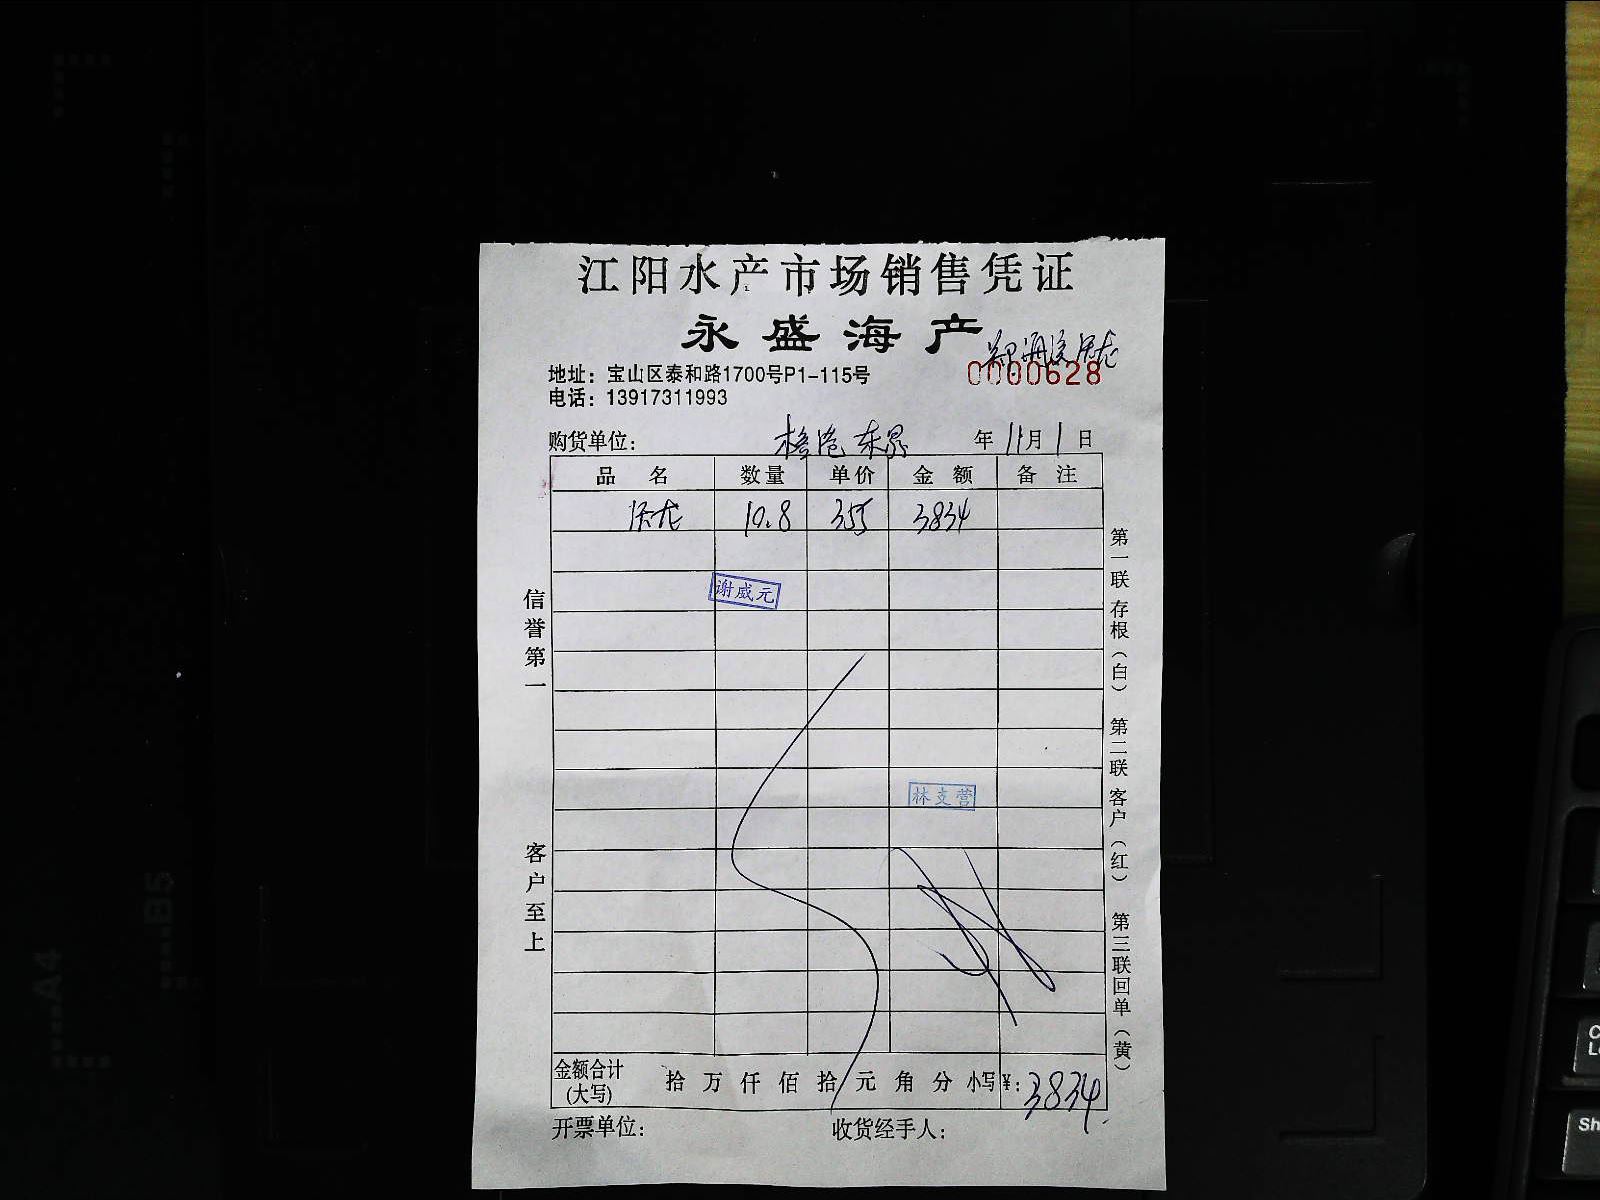 江阳水产市场销售凭证
永盛海产
0000628
地址：宝山区泰和路1700号P1-115号
电话：13917311993
购货单位： 年 11月 1日
品名 数量 单价 金额 备注
10.8 355 3834
谢威元
林支营
信誉第一 客户至上
第一联 存根（白） 第二联 客户（红） 第三联 回单（黄）
金额合计 拾 万 仟 佰 拾 元 角 分 小写¥：3834
(大写)
开票单位： 收货经手人：
A4
B5